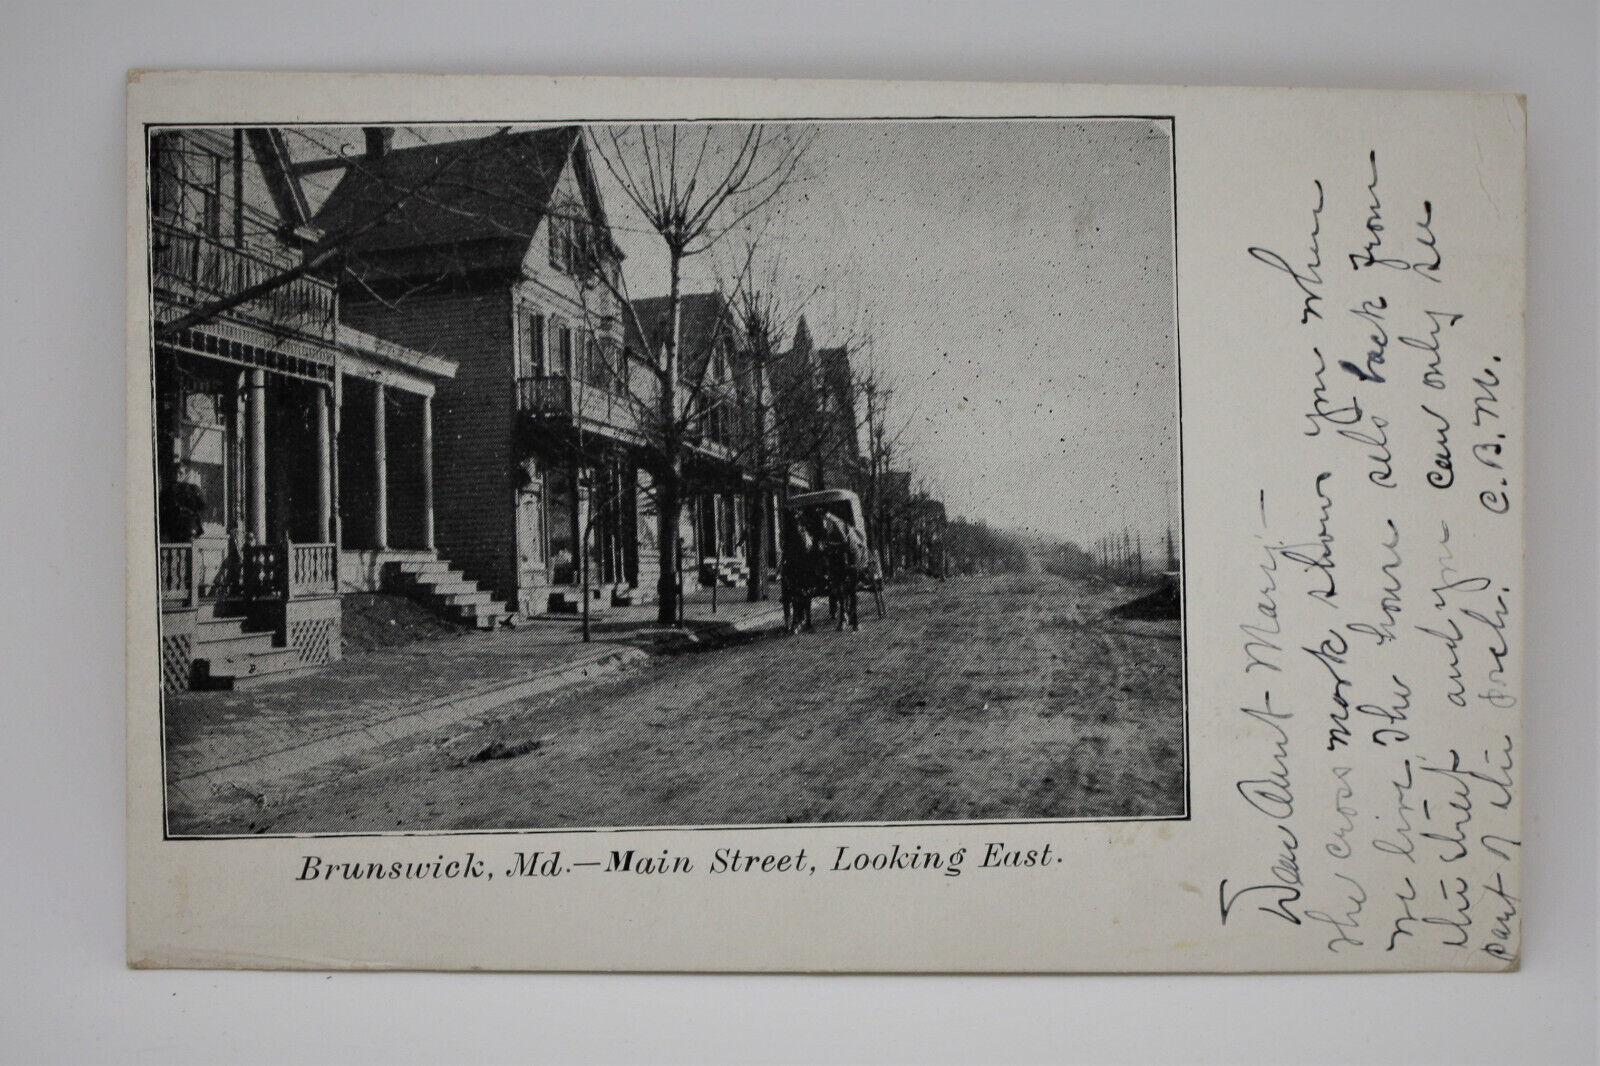 Brunswick, Md.—Main Street, Looking East.
Dear Aunt Mary:—
The cross mark shows you where
we live. The house sets back from
the street and you can only see
part of the porch. C. B. M.